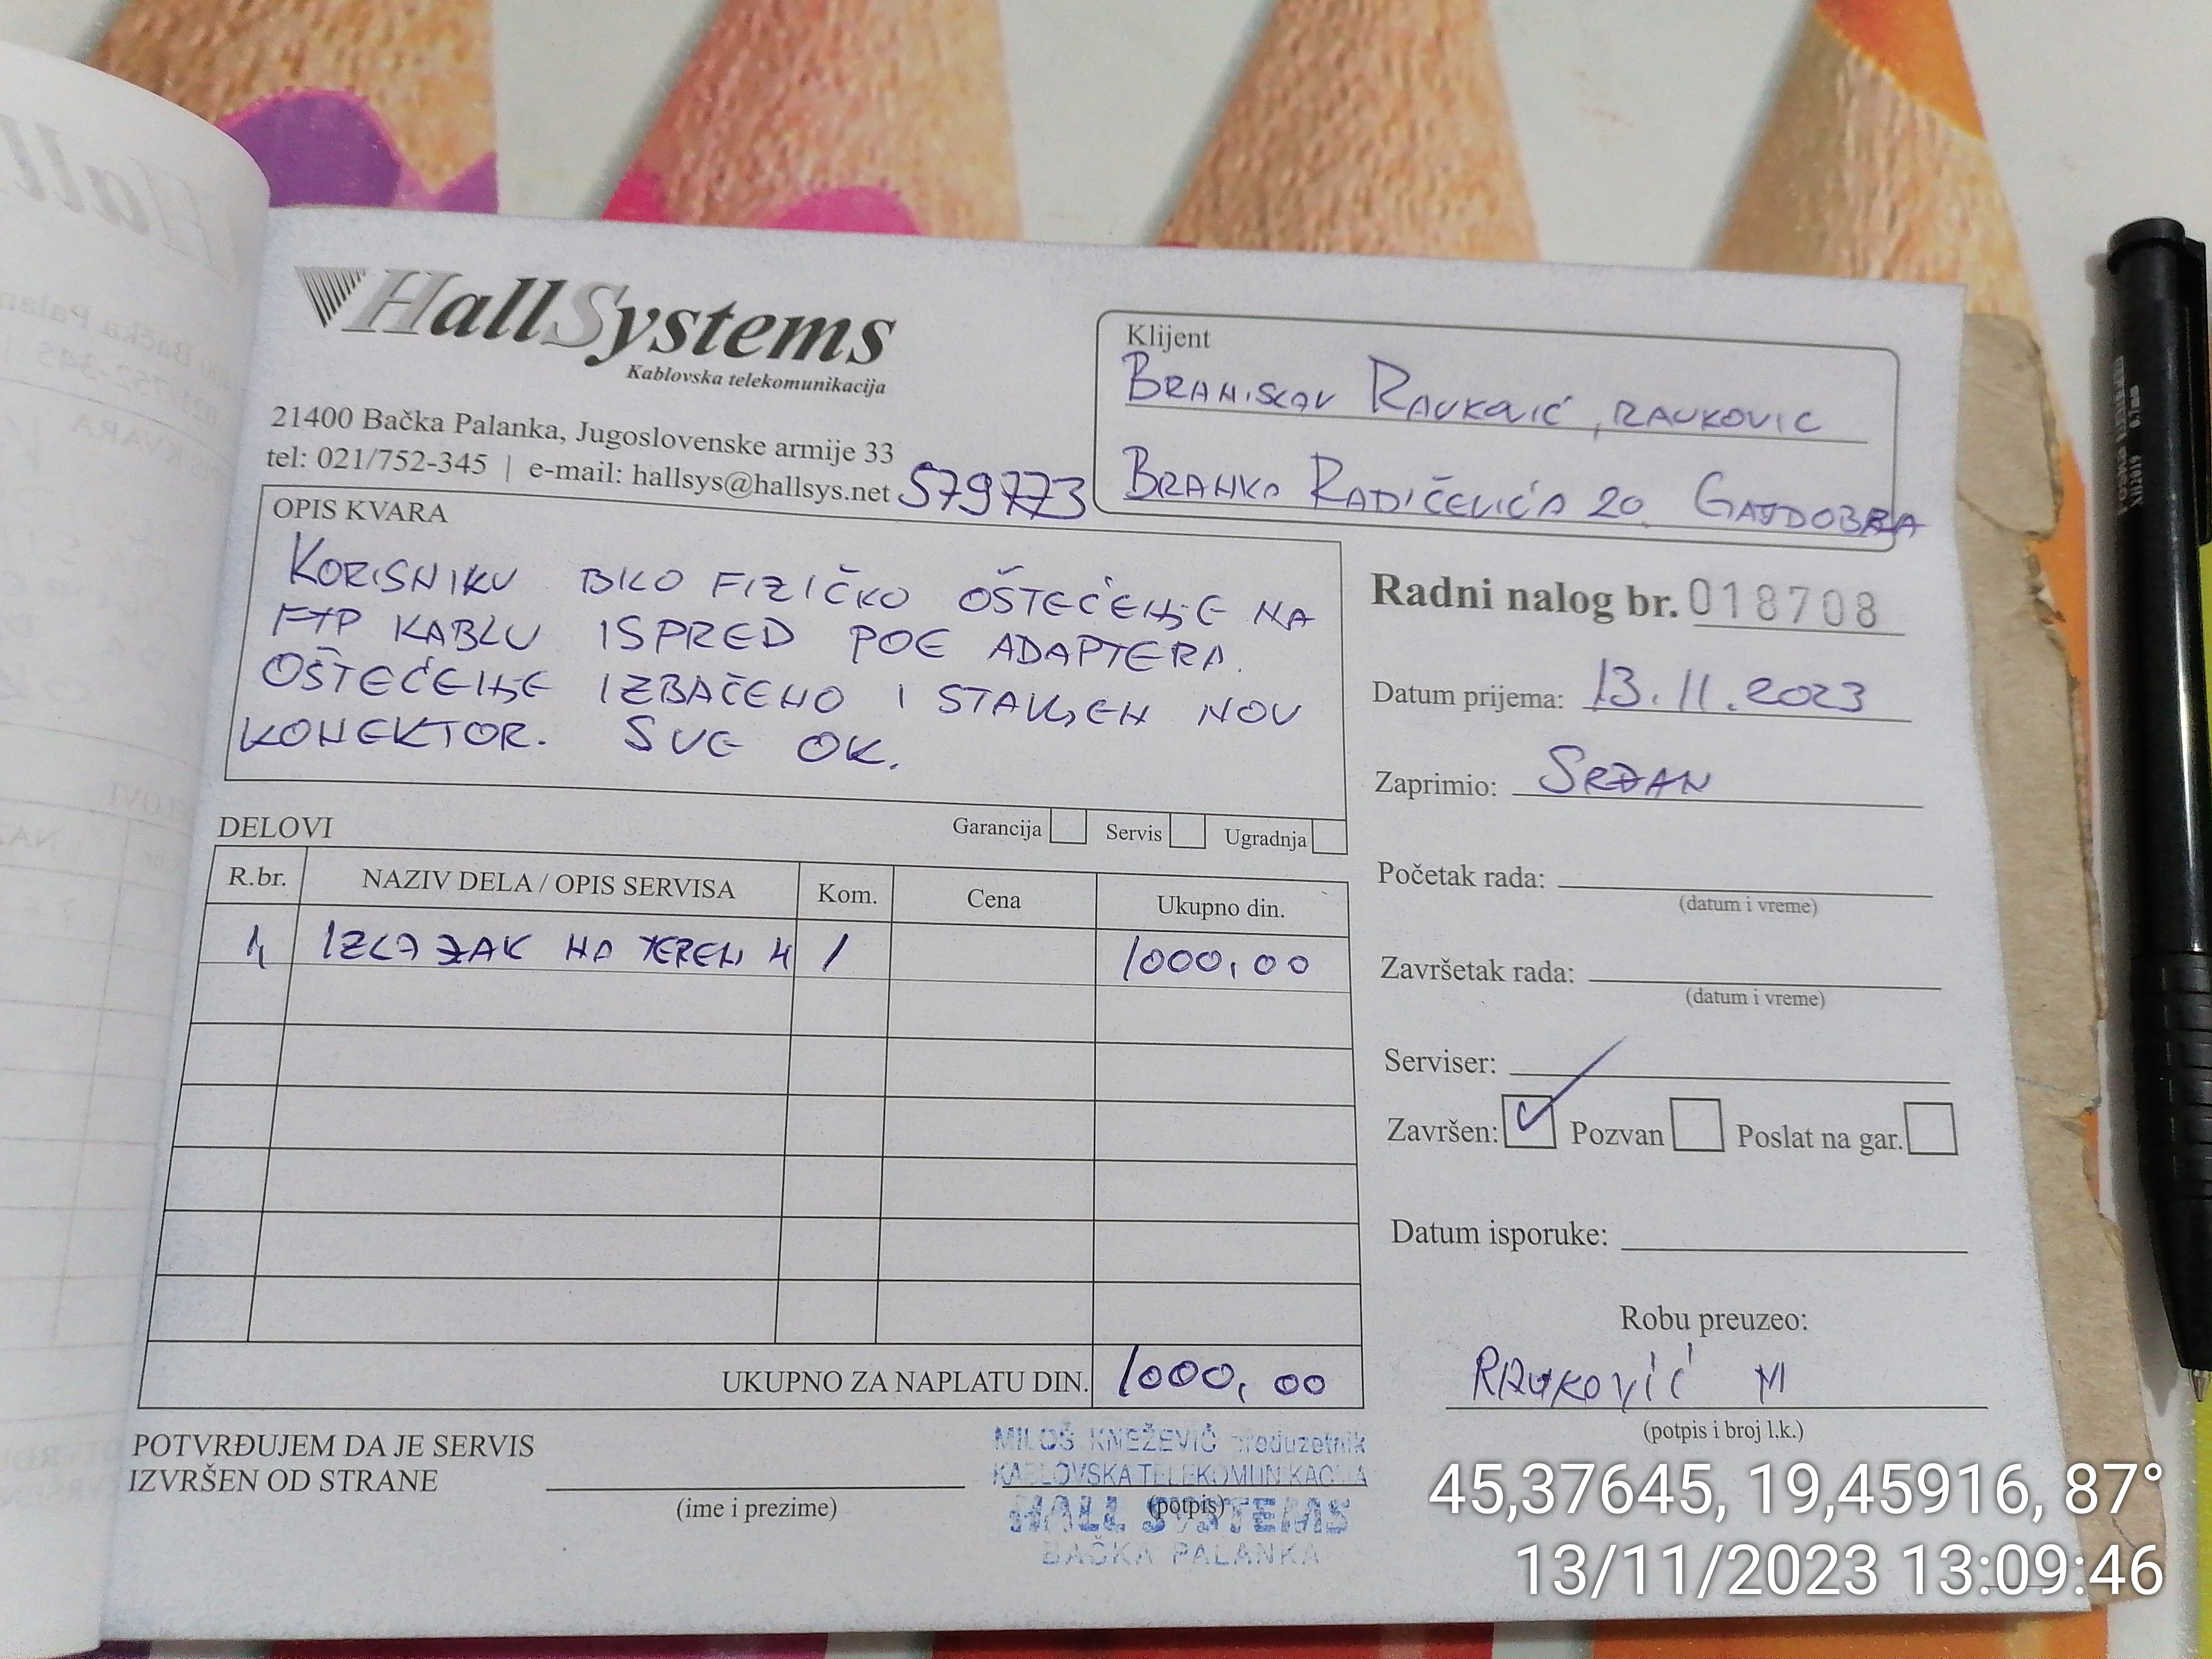 HallSystems
Kablovska telekomunikacija
21400 Bačka Palanka, Jugoslovenske armije 33
tel: 021/752-345 | e-mail: hallsys@hallsys.net 579773
Klijent
BRANISLAV RAUKOVIĆ, RAUKOVIC
BRANKA RADIČEVIĆA 20, GAJDOBRA
OPIS KVARA
KORISNIKU BILO FIZIČKO OŠTEĆENJE NA
FTP KABLU ISPRED POE ADAPTERA.
OŠTEĆENJE IZBAČENO I STAVLJEN NOV
KONEKTOR. SVE OK.
Garancija Servis Ugradnja
DELOVI
R.br. NAZIV DELA / OPIS SERVISA Kom. Cena Ukupno din.
1, IZLAZAK NA TEREN 1 1000,00
UKUPNO ZA NAPLATU DIN. 1000,00
POTVRĐUJEM DA JE SERVIS
IZVRŠEN OD STRANE
(ime i prezime)
(potpis)
MILOŠ KNEŽEVIĆ preduzetnik
KABLOVSKA TELEKOMUNIKACIJA
HALL SYSTEMS
BAČKA PALANKA
Radni nalog br. 018708
Datum prijema: 13.11.2023
Zaprimio: SRĐAN
Početak rada:
(datum i vreme)
Završetak rada:
(datum i vreme)
Serviser:
Završen: Pozvan Poslat na gar.
Datum isporuke:
Robu preuzeo:
RAUKOVIĆ M
(potpis i broj l.k.)
45,37645, 19,45916, 87°
13/11/2023 13:09:46